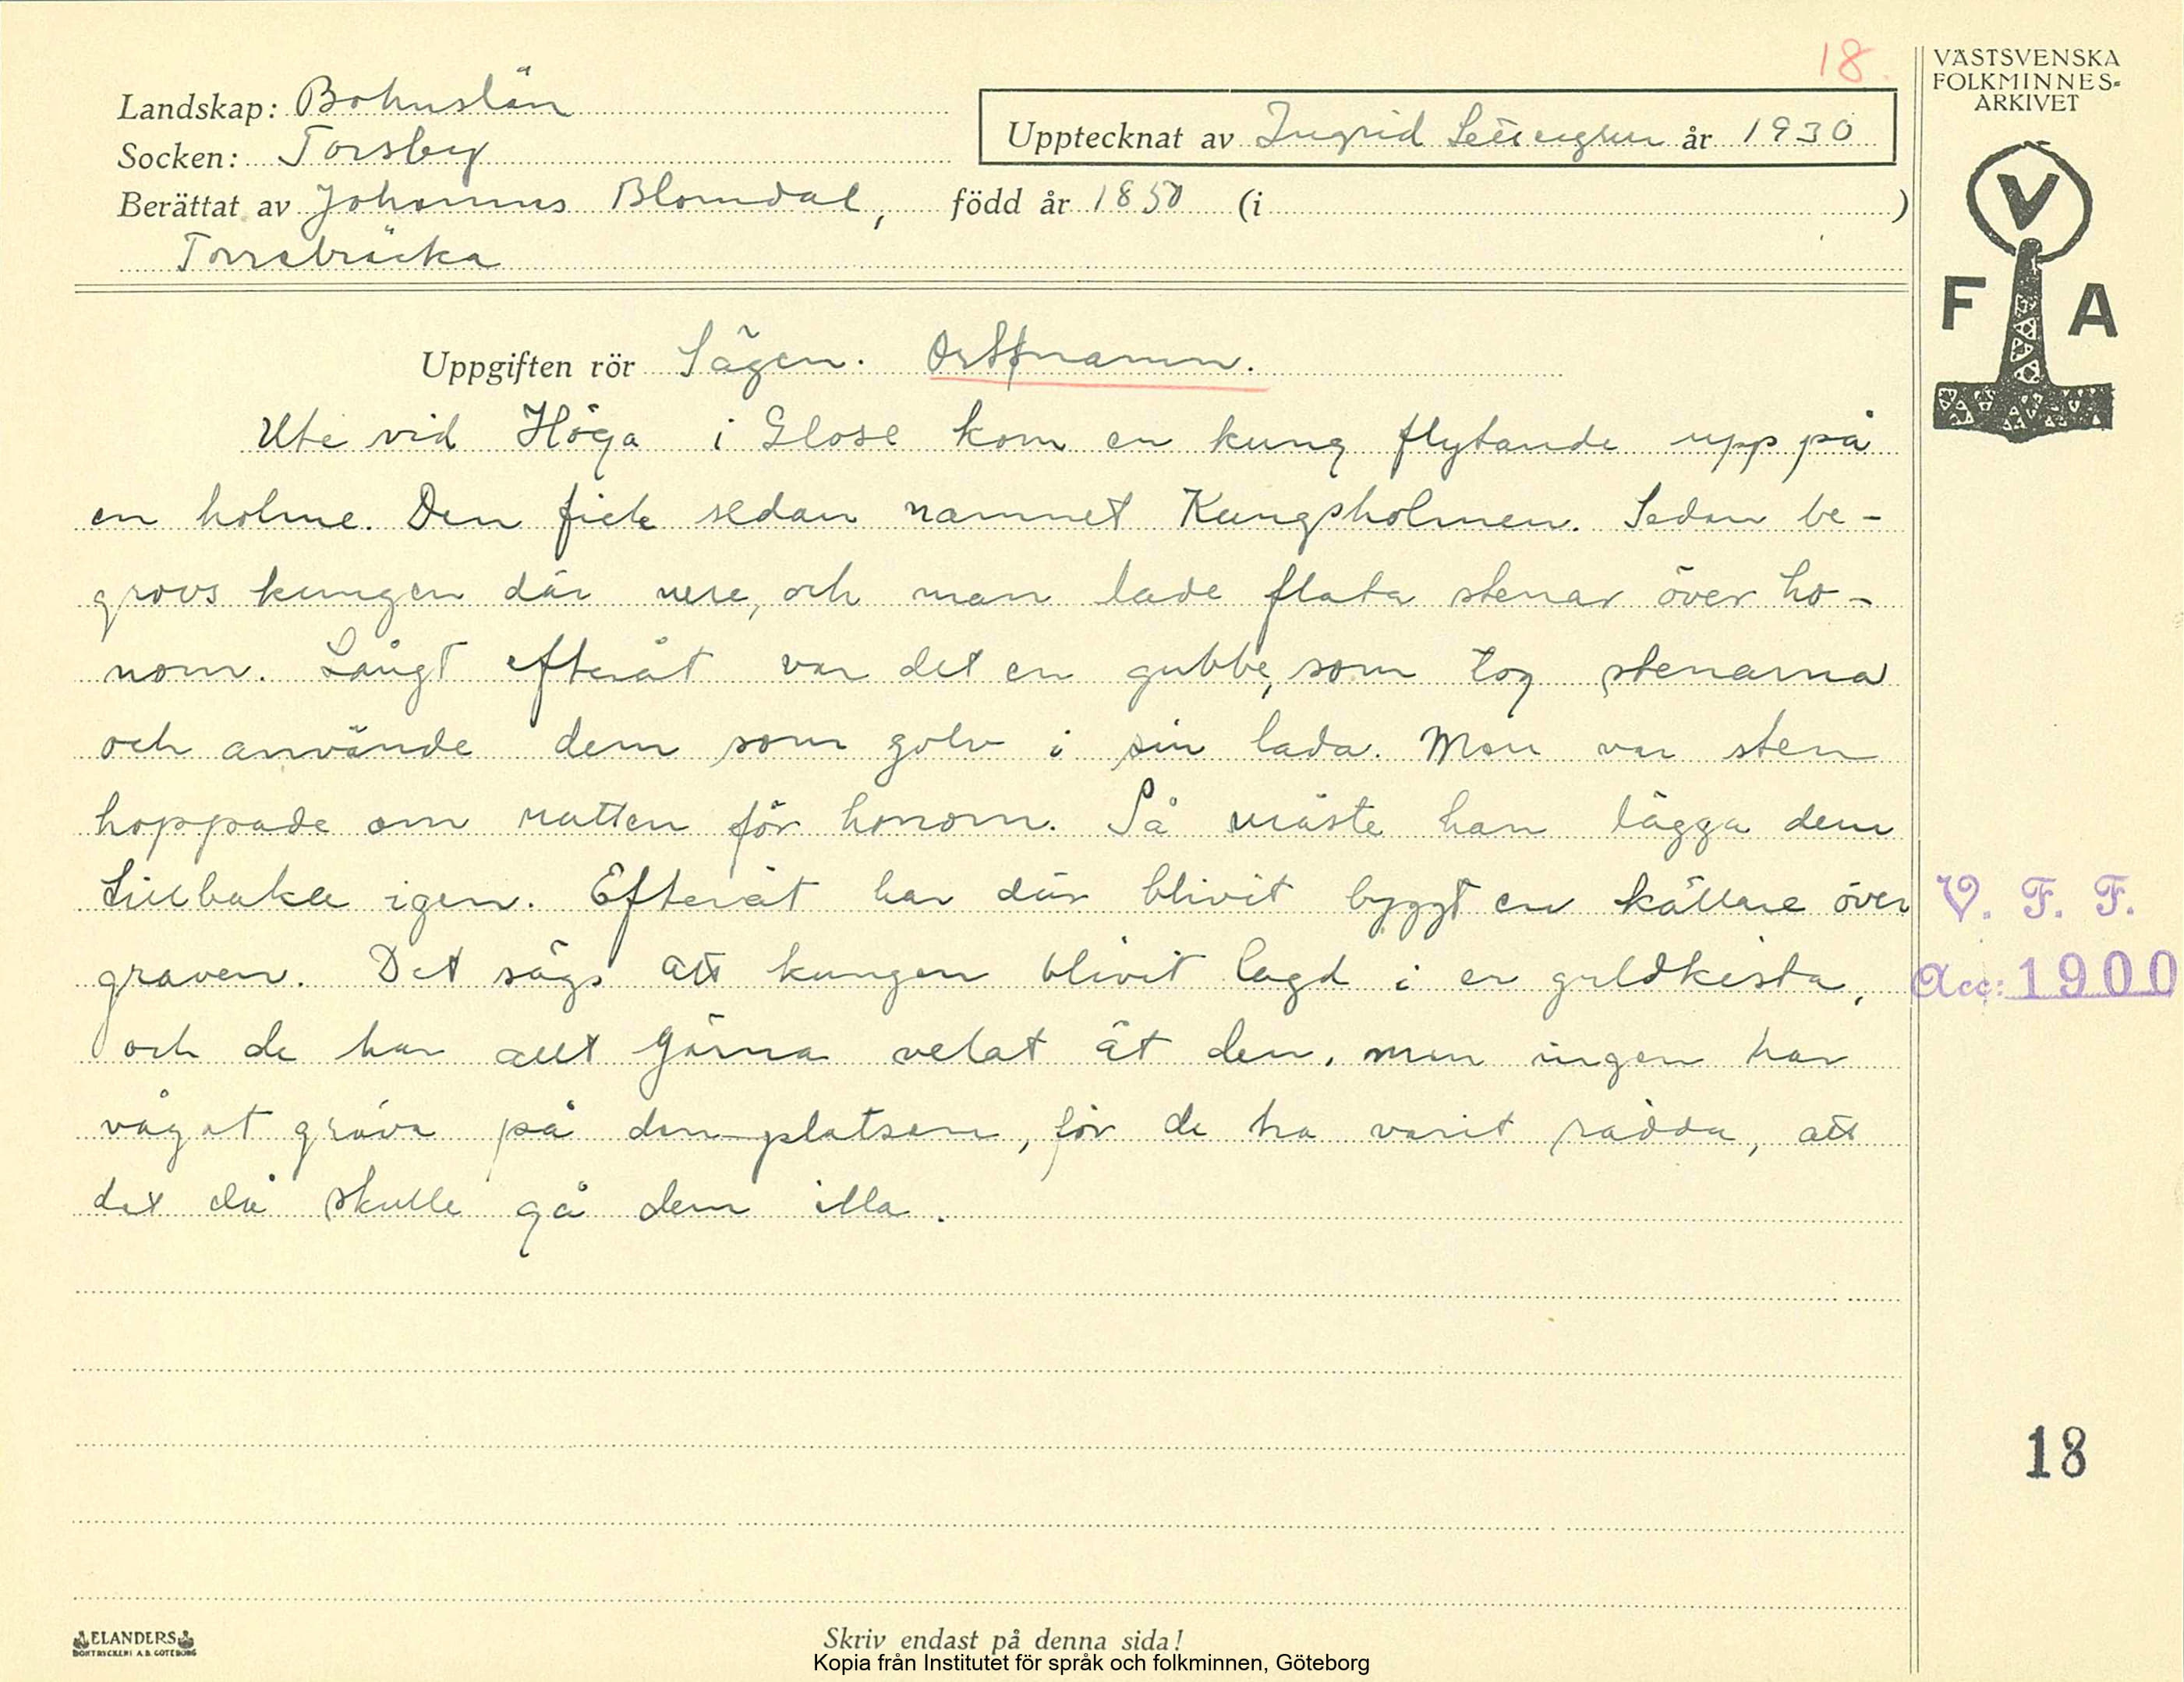 18.
VÄSTSVENSKA
FOLKMINNES-
ARKIVET
V
F A
Landskap: Bohuslän
Socken: Torsby
Upptecknat av Ingrid år 1930
Berättat av Johannes Blomdal, född år 1850 (i )
Torrebräcka
Uppgiften rör Sägen. Ortnamn.
Ute vid Höga i Glose kom en kung flytande upp på
en holme. Den fick sedan namnet Kungsholmen. Sedan be-
grovs kungen där nere, och man lade flata stenar över ho-
nom. Långt efteråt var det en gubbe, som tog stenarna
och använde dem som golv i sin lada. Men var sten
hoppade om natten för honom. Så måste han lägga dem
tillbaka igen. Efteråt har där blivit byggt en källare över
graven. Det sägs att kungen blivit lagd i en guldkista,
och de har allt gärna velat åt den, men ingen har
vågat gräva på den platsen, för de ha varit rädda, att
det då skulle gå dem illa.
V. F. F.
Acc: 1900
18
ELANDERS
BOKTRYCKERI A.B. GÖTEBORG
Skriv endast på denna sida!
Kopia från Institutet för språk och folkminnen, Göteborg